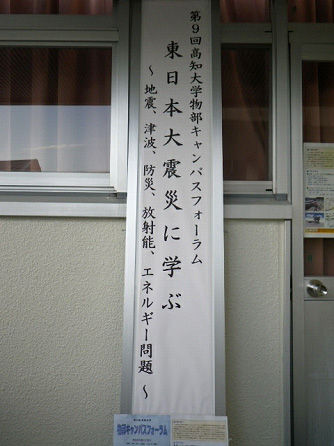 第9回高知大学物部キャンパスフォーラム
東日本大震災に学ぶ
～地震、津波、防災、放射能、エネルギー問題～
物部キャンパスフォーラム